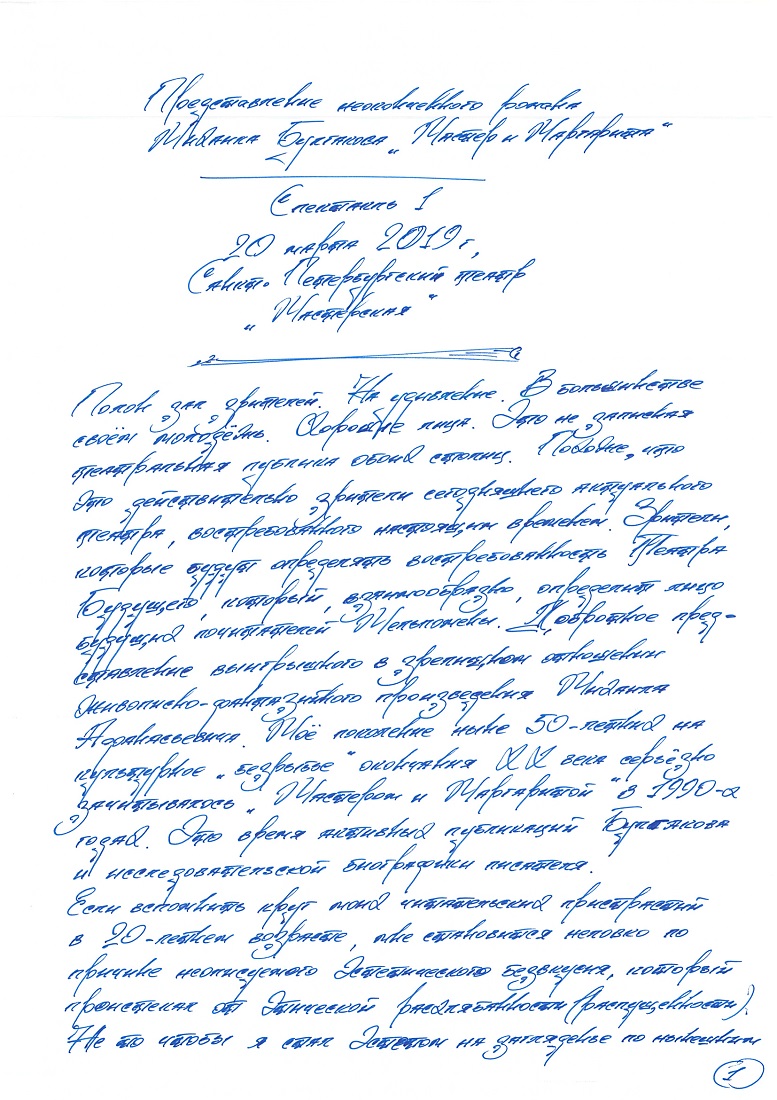 Представление неоконченного романа
Михаила Булгакова „Мастер и Маргарита"
Спектакль 1
20 марта 2019 г.,
Санкт-Петербургский театр
„Мастерская"
Полон зал зрителей. На удивление. В большинстве
своём молодёжь. Хорошие лица. Это не записная
театральная публика обоих столиц. Похоже, что
это действительно зрители сегодняшнего актуального
театра, востребованного настоящим временем. Зрители,
которые будут определять востребованность Театра
Будущего, который, взаимообразно, определит лицо
будущих почитателей Мельпомены. Добротное пред-
ставление выигрышного в зрелищном отношении
живописно-фантазийного произведения Михаила
Афанасьевича. Моё поколение ныне 50-летних на
культурное „безрыбье" окончания XX века серьёзно
зачитывалось „Мастером и Маргаритой" в 1990-х
годах. Это время активных публикаций Булгакова
и исследовательской биографики писателя.
Если вспомнить круг моих читательских пристрастий
в 20-летнем возрасте, мне становится неловко по
причине неописуемого эстетического безвкусия, который
проистекал от этической расхлябанности (распущенности).
Не то чтобы я стал эстетом на загляденье по нынешним
1